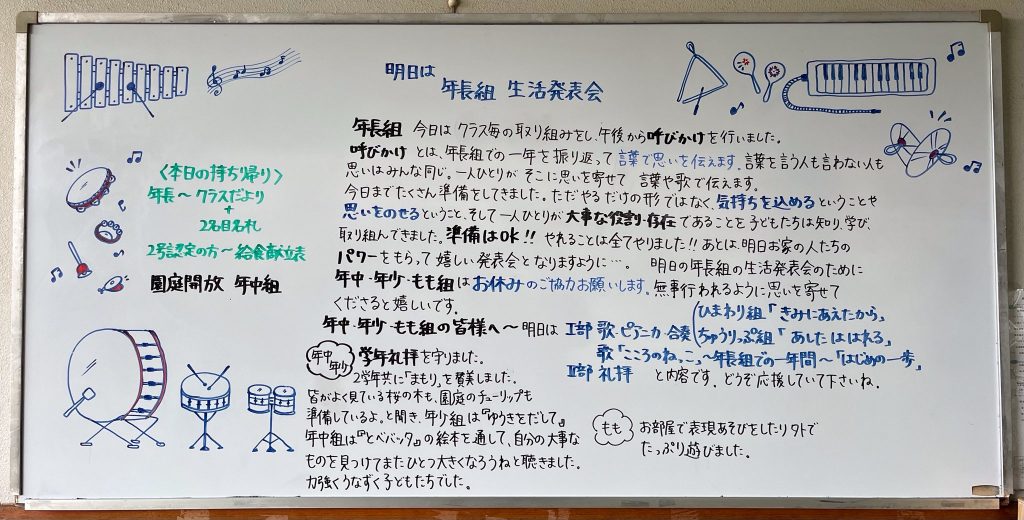 明日は
年長組 生活発表会
年長組 今日はクラス毎の取り組みをし、午後から呼びかけを行いました。
呼びかけ とは、年長組での一年を振り返って言葉で思いを伝えます。言葉を言う人も言わない人も
思いはみんな同じ。一人ひとりが そこに思いを寄せて 言葉や歌で伝えます。
今日までたくさん準備をしてきました。ただやるだけの形ではなく、気持ちを込めるということや
思いをのせるということ、そして一人ひとりが大事な役割・存在であることを子どもたちは知り、学び、
取り組んできました。準備はOK!! やれることは全てやりました!! あとは、明日お客の人たちの
パワーをもらって嬉しい発表会となりますように…。 明日の年長組の生活発表会のために
年中・年少・もも組はお休みのご協力お願いします。無事行われるように思いを寄せて
くださると嬉しいです。
年中・年少・もも組の皆様へ〜明日は Ⅰ部 歌、ピアニカ・合奏
ひまわり組「きみにあえたから」
ちゅうりっぷ組「あしたははれる」
歌「こころのねっこ」〜年長組での一年間〜「はじめの一歩」
Ⅱ部 礼拝 と内容です。どうぞ応援していて下さいね。
年中
年少
学年礼拝を守りました。
2学年共に「まもり」を賛美しました。
皆がよく見ている桜の木も、園庭のチューリップも
準備しているよ。と聞き、年少組は『ゆうきをだして』
年中組は『とべバッタ』の絵本を通して、自分の大事な
ものを見つけてまたひとつ大きくなろうねと聴きました。
力強くうなずく子どもたちでした。
もも
お部屋で表現あそびをしたり外で
たっぷり遊びました。
〈本日の持ち帰り〉
年長〜クラスだより
+
2名目名札
2号認定の方〜給食献立表
園庭開放 年中組